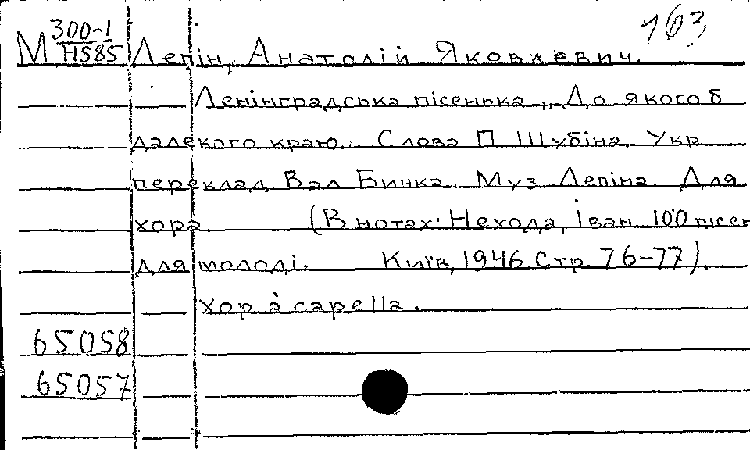 163
М 300-1 Лепін, Анатолій Яковлевич.
П585
Ленінградська пісенька „До якого б
далекого краю". Слова П Шубіна Укр
переклад Вал Бичка. Муз Лепіна Для
хора (В нотах: Нехода, Іван 100 пісен
для молоді. Київ, 1946 Стр 76-77).
хор à capella.
65058
65057